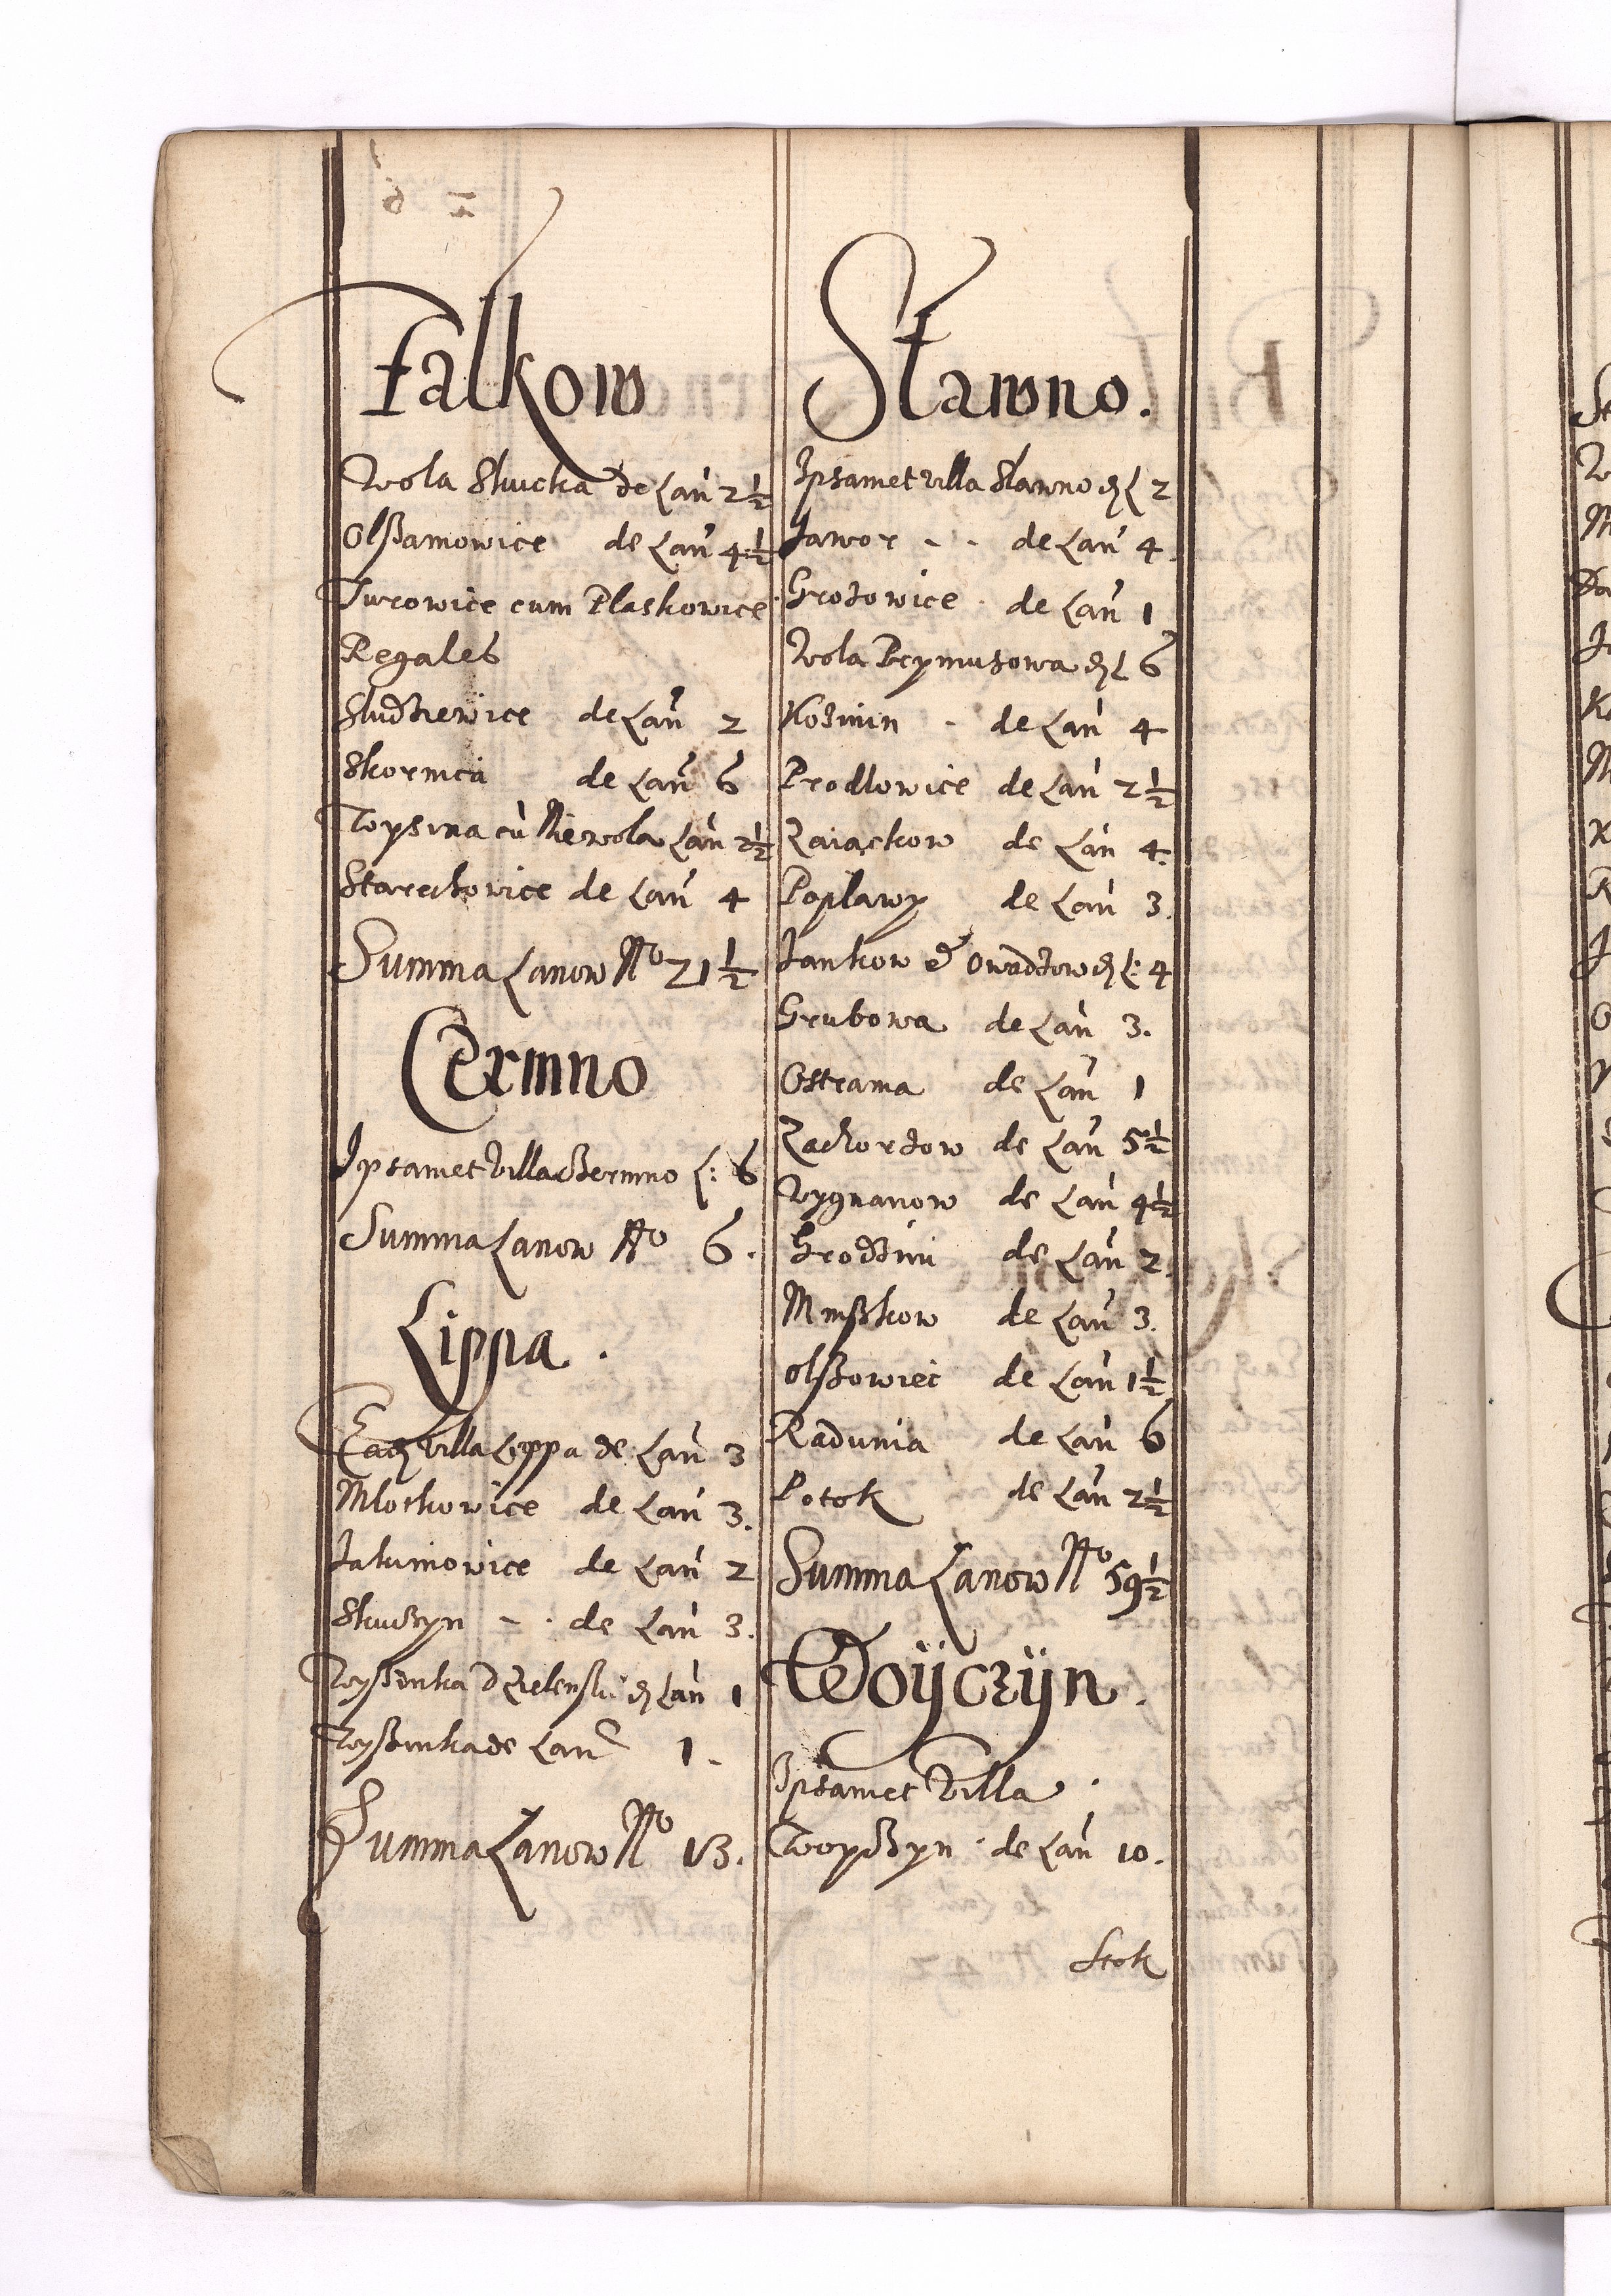 Falkow
Wola Skucka de Łan 2½
Olßamowice de Łan 4½
Turowice cum Plaskowice
Regales
Sludziewice de Łan 2
Skornica de Łan 6
Toysina cũ Niewola Łan 2½
Starechowice de Łan 4
Summa Łanow No 21½
Cermno
Ipsamet Villa Czermno Ł: 6
Summa Łanow No 6.
Lippa.
Eadem Villa Lippa de Łan 3
Mlotkowice de Łan 3.
Jakimowice de Łan 2
Skuszyn - . de Łan 3.
de Łan 1
de Łan 1.
Summa Łanow No 13.
Sławno.
Ipsamet Villa Slawno de Ł 2
Jawor - - de Łan 4.
Grozowice . de Łan 1
Wola de Ł 6
Kozinin - de Łan 4
Prodlowice de Łan 2½
Zaiaczkow de Łan 4.
Poplawy de Łan 3.
Jankow et Owadzow de Ł: 4
Grubowa de Łan 3.
Ostrama de Łan 1
Zachorzow de Łan 5½
Wygnanow de Łan 4½
Grodzini de Łan 2.
Mnißkow de Łan 3.
Olßowiec de Łan 1½
Radunia de Łan 6
Potok de Łan 2½
Summa Łanow No 59½
Woÿczÿn.
Ipsamet Villa .
Woyszyn . de Łan 10.
Stok